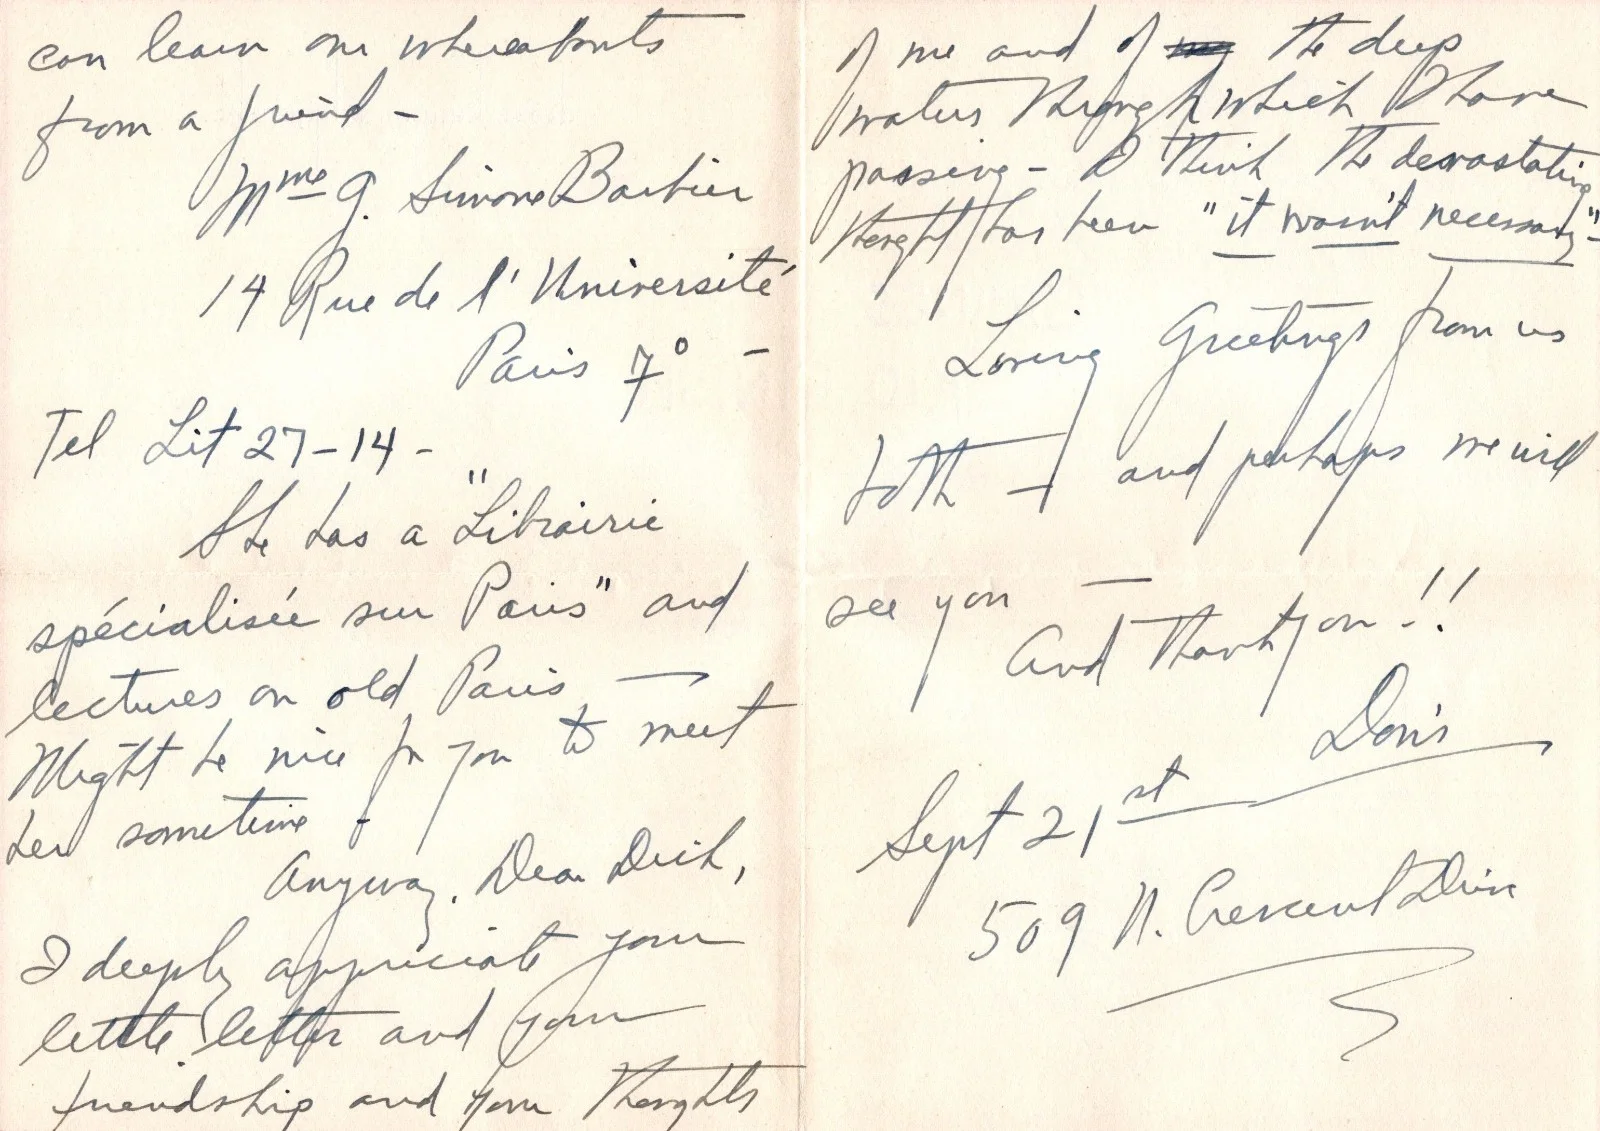 can learn our whereabouts
from a friend -
Mme G. Simone Barbier
14 Rue de l'Université
Paris 7° -
Tel Lit 27-14 -
She has a "Librairie
spécialisée sur Paris" and
lectures on old Paris —
Might be nice for you to meet
her sometime -
Anyway, Dear Dick,
I deeply appreciate your
little letter and your
friendship and your thoughts
of me and of the deep
waters through which I have
passing - I think the devastating
thought has been "it wasn't necessary" -
Loving Greetings from us
both — and perhaps we will
see you —
And Thank you!!
Doris
Sept 21st
509 N. Crescent Drive